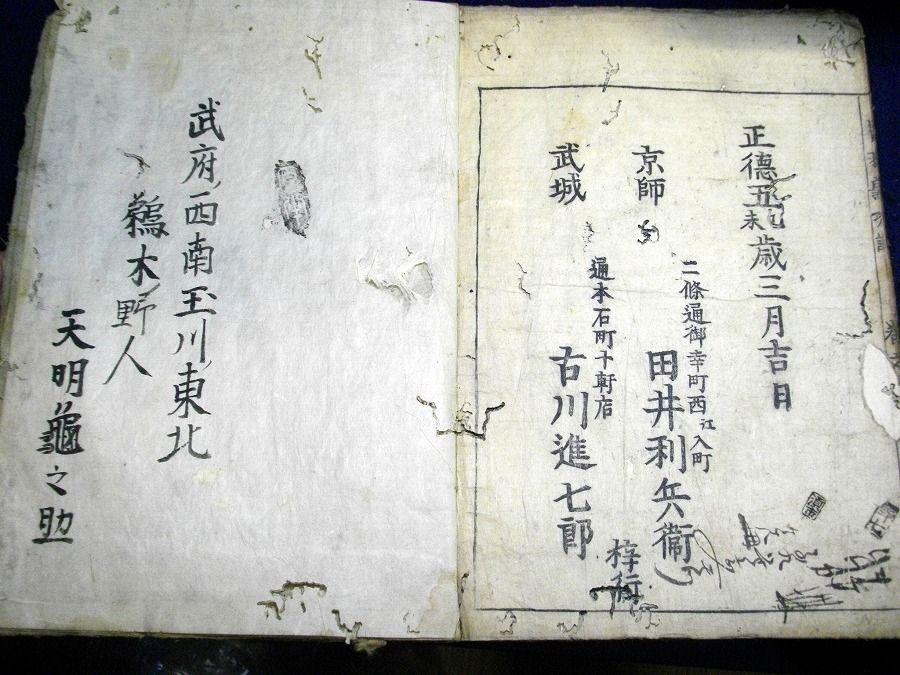 正德五乙未歳三月吉日
京師 二條通御幸町西江入町
田井利兵衞
武城 通本石町十軒店
古川進七郎
梓行
武府西南玉川東北
鵜木野人
天明龜之助